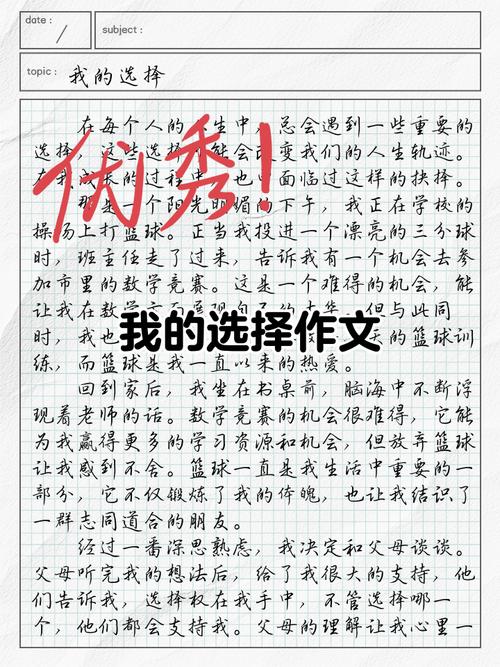 date:
subject:
topic: 我的选择
在每个人的 生中，总会遇到一些重要的
选择，这些选 能会改变我们的人生轨迹。
在我成长的过程中 也 面临过这样的抉择。
那是一个阳光明媚的下午，我正在学校的
操场上打篮球。正当我投进一个漂亮的三分球
时，班主任走了过来，告诉我有一个机会去参
加市里的数学竞赛。这是一个难得的机会，能
让我在数学 但与此同
时，我也 天的篮球训
练，而篮球是我一直以来的热爱。
回到家后，我坐在书桌前，脑海中不断浮
现着老师的话。数学竞赛的机会很难得，它能
为我赢得更多的学习资源和机会，但放弃篮球
让我感到不舍。篮球一直是我生活中重要的一
部分，它不仅锻炼了我的体魄，也让我结识了
一群志同道合的朋友。
经过一番深思熟虑，我决定和父母谈谈。
父母听完我的想法后，给了我很大的支持，他
们告诉我，选择权在我手中，不管选择哪一
个，他们都会支持我。父母的理解让我心里一
优秀！
我的选择作文